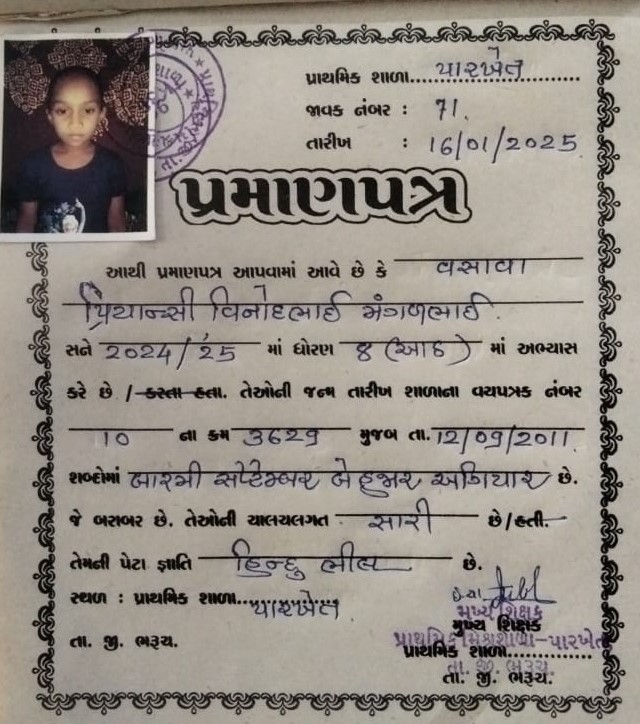 પ્રાથમિક શાળા....પારખેત
જાવક નંબર : 71.
તારીખ : 16/01/2025
પ્રમાણપત્ર
આથી પ્રમાણપત્ર આપવામાં આવે છે કે વસાવા
પ્રિયાન્સી વિનોદભાઈ મંગળભાઈ.
સને 2024/25 માં ધોરણ 8 (આઠ) માં અભ્યાસ
કરે છે / કરતા હતા. તેઓની જન્મ તારીખ શાળાના વયપત્રક નંબર
10 ના ક્રમ 3629 મુજબ તા. 12/09/2011.
શબ્દોમાં બારમી સપ્ટેમ્બર બે હજાર અગિયાર છે.
જે બરાબર છે. તેઓની ચાલચલગત સારી છે/હતી.
તેમની પેટા જ્ઞાતિ હિન્દુ ભીલ છે.
સ્થળ : પ્રાથમિક શાળા....પારખેત.
તા. જી. ભરૂચ.
મુખ્ય શિક્ષક
મુખ્ય શિક્ષક
પ્રાથમિક મિશ્રશાળા-પારખેત
પ્રાથમિક શાળા..............
તા. જી. ભરૂચ
તા. જી. ભરૂચ.